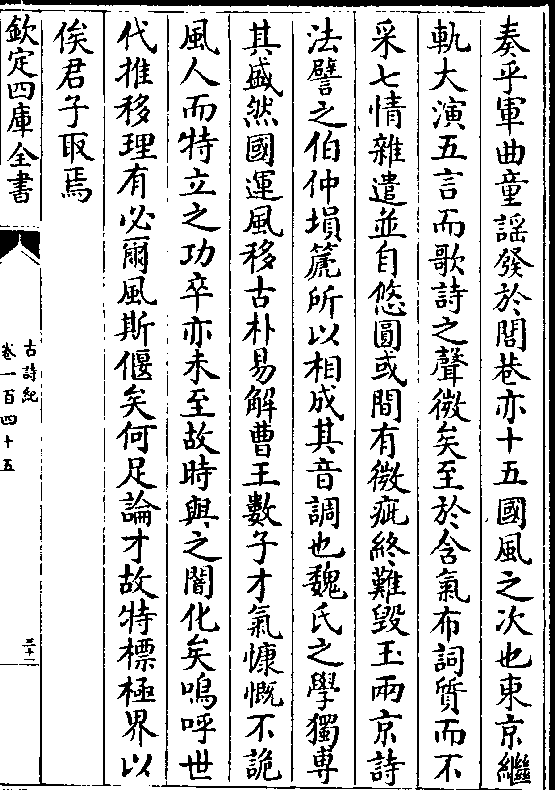 奏乎軍曲童謡發於閭巷亦十五國風之次也東京繼
軌大演五言而歌詩之聲微矣至於含氣布詞質而不
采七情雜遣並自悠圓或間有微疵終難毀玉兩京詩
法譬之伯仲塤篪所以相成其音調也魏氏之學獨專
其盛然國運風移古朴易解曹王數子才氣慷慨不詭
風人而特立之功卒亦未至故時與之闇化矣嗚呼世
代推移理有必爾風斯偃矣何足論才故特標極界以
俟君子取焉
欽定四庫全書
古詩紀
卷一百四十五
三十二